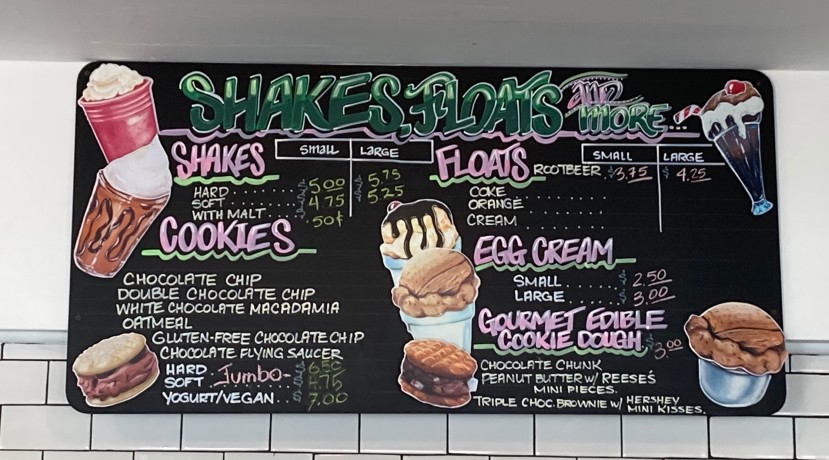 SHAKES, FLOATS AND MORE...
SHAKES SMALL LARGE
HARD ........ $5.00 $5.75
SOFT ........ $4.75 $5.25
WITH MALT ... .50¢
COOKIES
CHOCOLATE CHIP
DOUBLE CHOCOLATE CHIP
WHITE CHOCOLATE MACADAMIA
OATMEAL
GLUTEN-FREE CHOCOLATE CHIP
CHOCOLATE FLYING SAUCER
HARD
SOFT . Jumbo- 4.75
YOGURT/VEGAN... 7.00
FLOATS SMALL LARGE
ROOTBEER .$3.75 $4.25
COKE
ORANGE
CREAM
EGG CREAM
SMALL ..... $2.50
LARGE ..... $3.00
GOURMET EDIBLE
COOKIE DOUGH $3.00
CHOCOLATE CHUNK
PEANUT BUTTER W/ REESE'S
MINI PIECES.
TRIPLE CHOC. BROWNIE W/ HERSHEY
MINI KISSES.